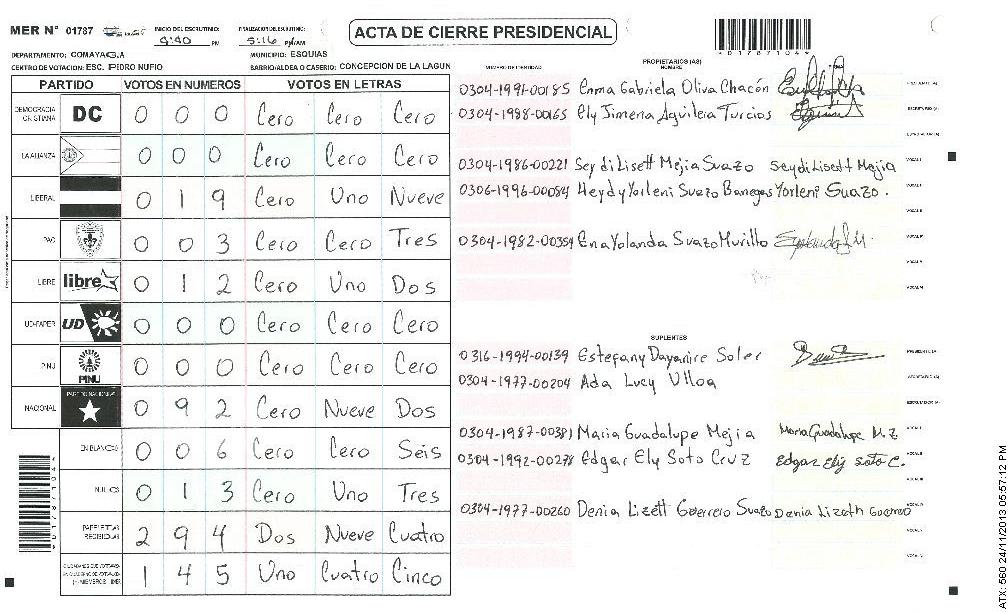 MER N° 01787
INICIO DEL ESCRUTINIO: 4:40 PM
FINALIZACION DE ESCRUTINIO: 5:16 PM/AM
ACTA DE CIERRE PRESIDENCIAL
*01787104*
DEPARTAMENTO: COMAYAGUA
MUNICIPIO: ESQUIAS
CENTRO DE VOTACION: ESC. IPIDRO NUFIO
BARRIO/ALDEA O CASERIO: CONCEPCION DE LA LAGUN
PARTIDO VOTOS EN NUMEROS VOTOS EN LETRAS
DEMOCRACIA CRISTIANA DC 0 0 0 Cero Cero Cero
LA ALIANZA 0 0 0 Cero Cero Cero
LIBERAL 0 1 9 Cero Uno Nueve
PAC 0 0 3 Cero Cero Tres
LIBRE libre 0 1 2 Cero Uno Dos
UD-FAPER UD 0 0 0 Cero Cero Cero
PINU PINU 0 0 0 Cero Cero Cero
NACIONAL PARTIDO NACIONAL 0 9 2 Cero Nueve Dos
EN BLANCO 0 0 6 Cero Cero Séis
NULOS 0 1 3 Cero Uno Tres
PAPELETAS RECIBIDAS 2 9 4 Dos Nueve Cuatro
1 4 5 Uno Cuatro Cinco
*01787104*
NUMERO DE IDENTIDAD
PROPIETARIOS (AS)
NOMBRE
0304-1991-00185 Enma Gabriela Oliva Chacón
0304-1988-00165 Ely Jimena Aguilera Turcios
0304-1986-00221 Seydi Lisett Mejia Suazo Seydi Lisett Mejia
0306-1996-00084 Heydy Yorleni Suazo Banegas Yorleni Suazo.
0304-1982-00354 Ena Yolanda Suazo Murillo
SUPLENTES
0316-1994-00139 Estefany Dayanire Soler
0304-1977-00204 Ada Lucy Ulloa
0304-1987-00381 Maria Guadalupe Mejia Maria Guadalupe M. Z
0304-1992-00278 Edgar Ely Soto Cruz Edgar Ely Soto C.
0304-1977-00260 Denia Lizett Guerrero Suazo Denia Lizeth Guerrero
ATX: 560 24/11/2013 05:57:12 PM